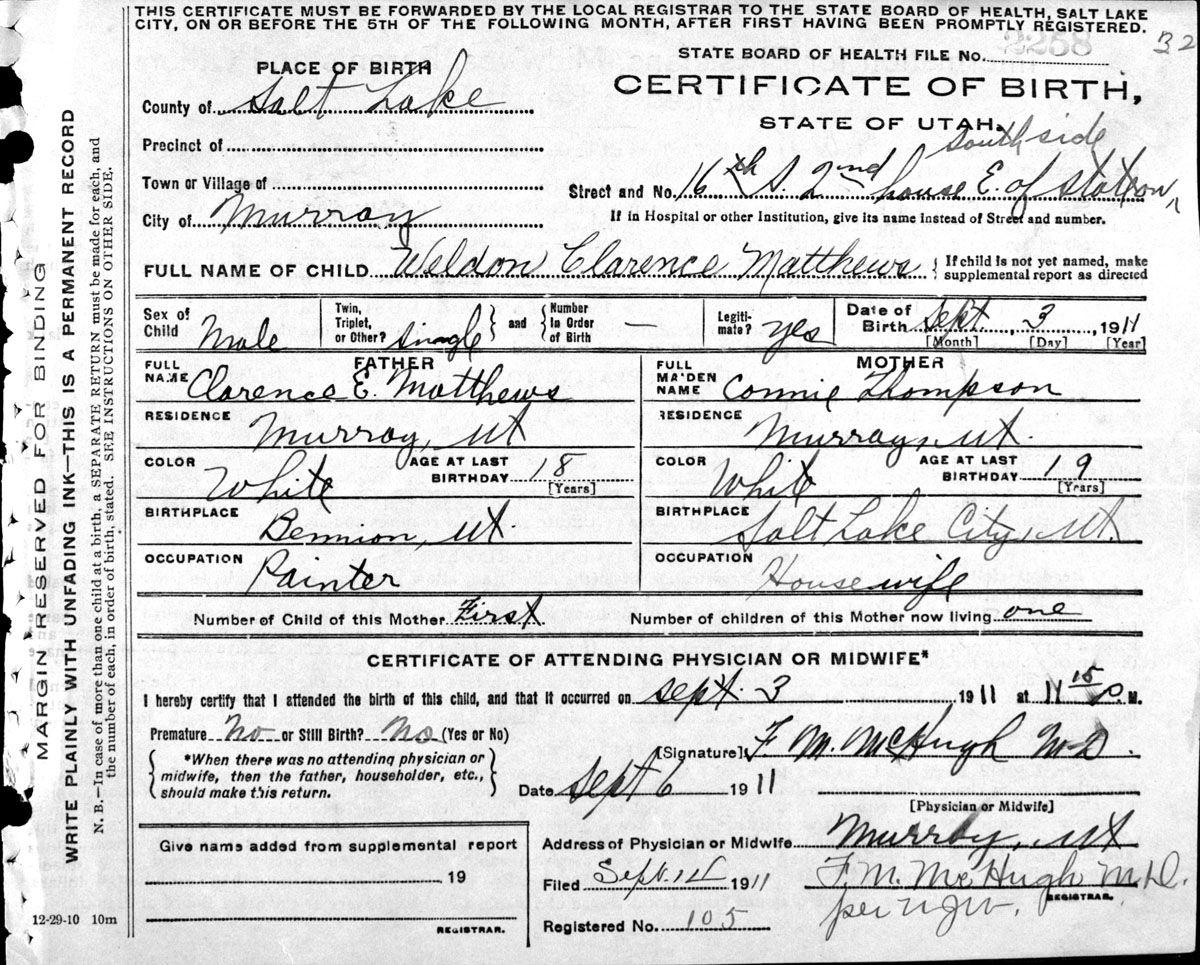 THIS CERTIFICATE MUST BE FORWARDED BY THE LOCAL REGISTRAR TO THE STATE BOARD OF HEALTH, SALT LAKE
CITY, ON OR BEFORE THE 5TH OF THE FOLLOWING MONTH, AFTER FIRST HAVING BEEN PROMPTLY REGISTERED.
32
STATE BOARD OF HEALTH FILE No. 2258
PLACE OF BIRTH
CERTIFICATE OF BIRTH,
County of Salt Lake
STATE OF UTAH.
Precinct of
south side
Town or Village of
Street and No. 16th S. 2nd house E. of Station
City of Murray
If in Hospital or other Institution, give its name instead of Street and number.
FULL NAME OF CHILD Weldon Clarence Matthews { If child is not yet named, make
supplemental report as directed
Sex of Child Male
Twin, Triplet, or Other? Single } and { Number In Order of Birth —
Legiti-mate? yes
Date of Birth Sept. 3, 1911
[Month] [Day] [Year]
FATHER
FULL NAME Clarence E. Matthews
RESIDENCE Murray, Ut
COLOR White AGE AT LAST BIRTHDAY 18 [Years]
BIRTHPLACE Bennion, Ut
OCCUPATION Painter
MOTHER
FULL MAIDEN NAME Connie Thompson
RESIDENCE Murray, Ut.
COLOR White AGE AT LAST BIRTHDAY 19 [Years]
BIRTHPLACE Salt Lake City, Ut.
OCCUPATION Housewife
Number of Child of this Mother First. Number of children of this Mother now living one
CERTIFICATE OF ATTENDING PHYSICIAN OR MIDWIFE*
I hereby certify that I attended the birth of this child, and that it occurred on Sept. 3 1911 at 11 15 P. M.
Premature No or Still Birth? No (Yes or No)
[Signature] F M. McHugh M-D.
{ *When there was no attending physician or
midwife, then the father, householder, etc.,
should make this return. }
Date Sept 6 1911
[Physician or Midwife]
Address of Physician or Midwife Murray, Ut
Give name added from supplemental report
19
REGISTRAR.
Filed Sept. 1911
F. M. McHugh M.D.
REGISTRAR.
per
Registered No. 105
12-29-10 10m
MARGIN RESERVED FOR BINDING
WRITE PLAINLY WITH UNFADING INK—THIS IS A PERMANENT RECORD
N. B.—In case of more than one child at a birth, a SEPARATE RETURN must be made for each, and
the number of each, in order of birth, stated. SEE INSTRUCTIONS ON OTHER SIDE.